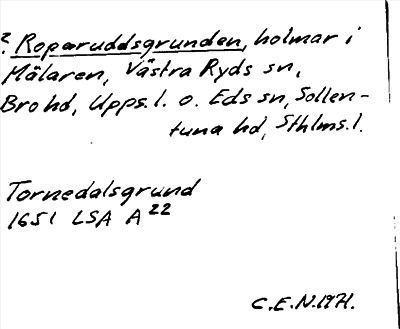 ? Roparuddsgrunden, holmar i
Mälaren, Västra Ryds sn,
Bro hd, Upps.l. o. Eds sn, Sollen-
tuna hd, Sthlms.l.
Tornedalsgrund
1651 LSA A 22
C.E.N. 1971.